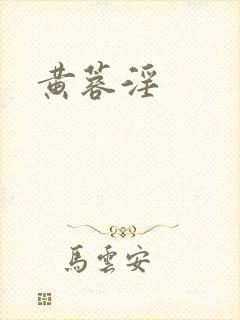 黄蓉淫
馬雲安